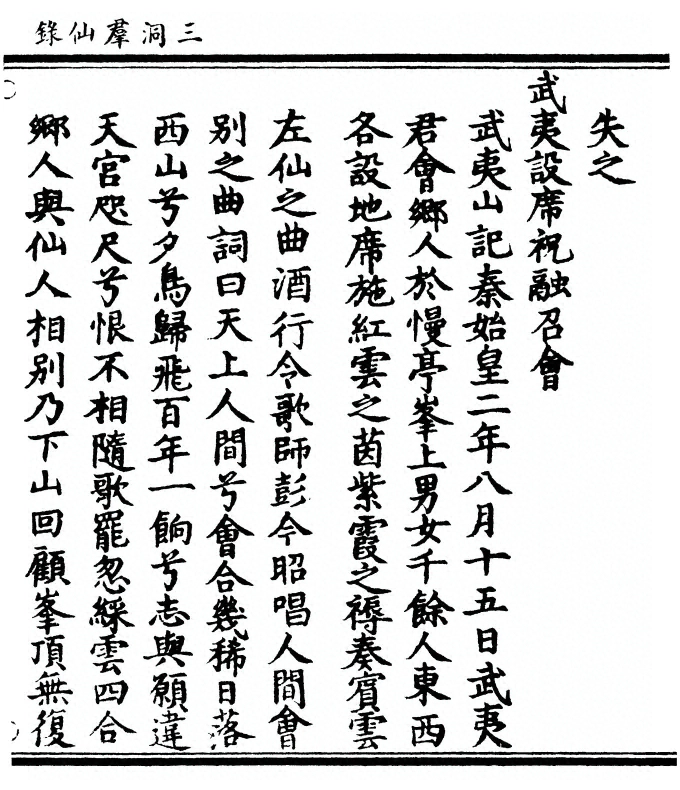 三洞羣仙錄
失之
武夷設席祝融召會
武夷山記秦始皇二年八月十五日武夷
君會鄉人於慢亭峯上男女千餘人東西
各設地席施紅雲之茵紫霞之褥奏賓雲
左仙之曲酒行令歌師彭令昭唱人間會
别之曲詞曰天上人間兮會合幾稀日落
西山兮夕鳥歸飛百年一餉兮志與願違
天宮咫尺兮恨不相隨歌罷忽綵雲四合
鄉人與仙人相别乃下山回顧峯頂無復